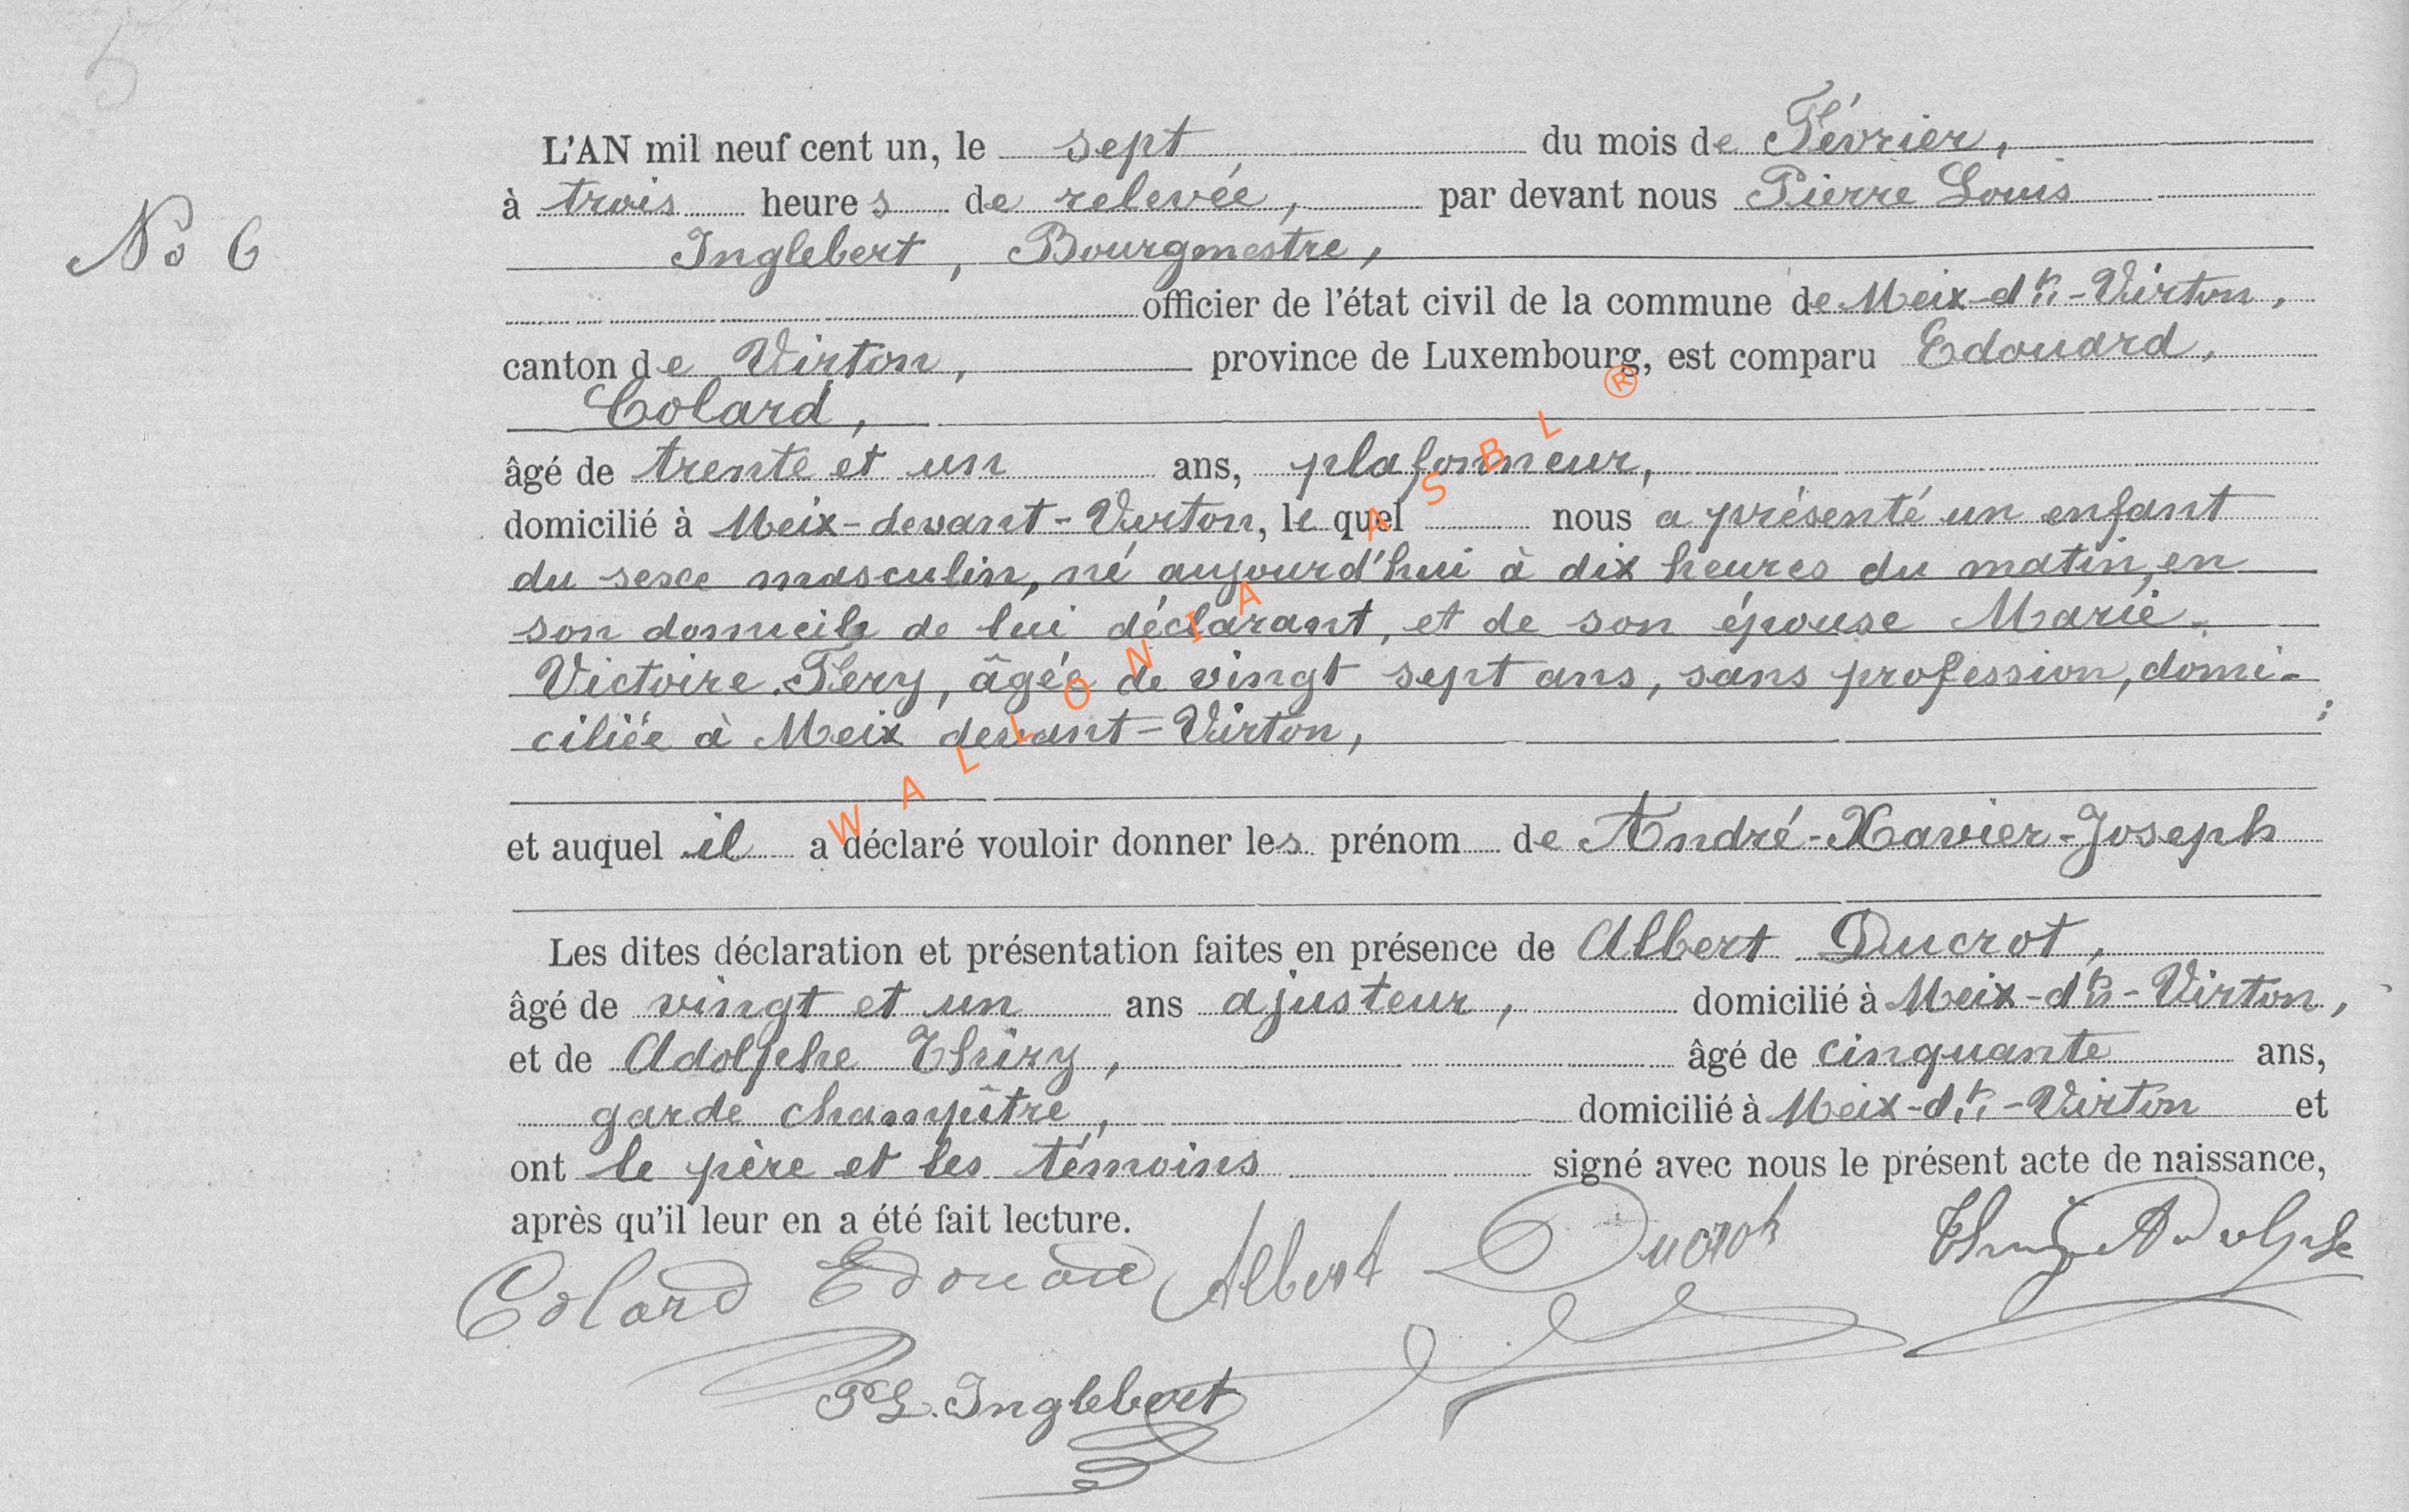 5
L'AN mil neuf cent un, le sept du mois de Février,
à trois heures de relevée, par devant nous Pierre Louis
No 6
Inglebert, Bourgmestre,
officier de l'état civil de la commune de Meix-dt-Virton,
canton de Virton, province de Luxembourg, est comparu Edouard,
Colard,
âgé de trente et un ans, plafonneur,
domicilié à Meix-devant-Virton, le quel nous a présenté un enfant
du sexe masculin, né aujourd'hui à dix heures du matin, en
son domicile de lui déclarant, et de son épouse Marie-
Victoire Fery, âgée de vingt sept ans, sans profession, domi-
ciliée à Meix devant-Virton,
et auquel il a déclaré vouloir donner les prénom de André-Xavier-Joseph
Les dites déclaration et présentation faites en présence de Albert Ducrot,
âgé de vingt et un ans ajusteur, domicilié à Meix-dt-Virton,
et de Adolphe Thiry, âgé de cinquante ans,
garde champêtre, domicilié à Meix-dt-Virton et
ont le père et les témoins signé avec nous le présent acte de naissance,
après qu'il leur en a été fait lecture.
Colard Edouard Albert Ducrot Thiry Adolphe
PL. Inglebert
WALLONIA ASBL ®